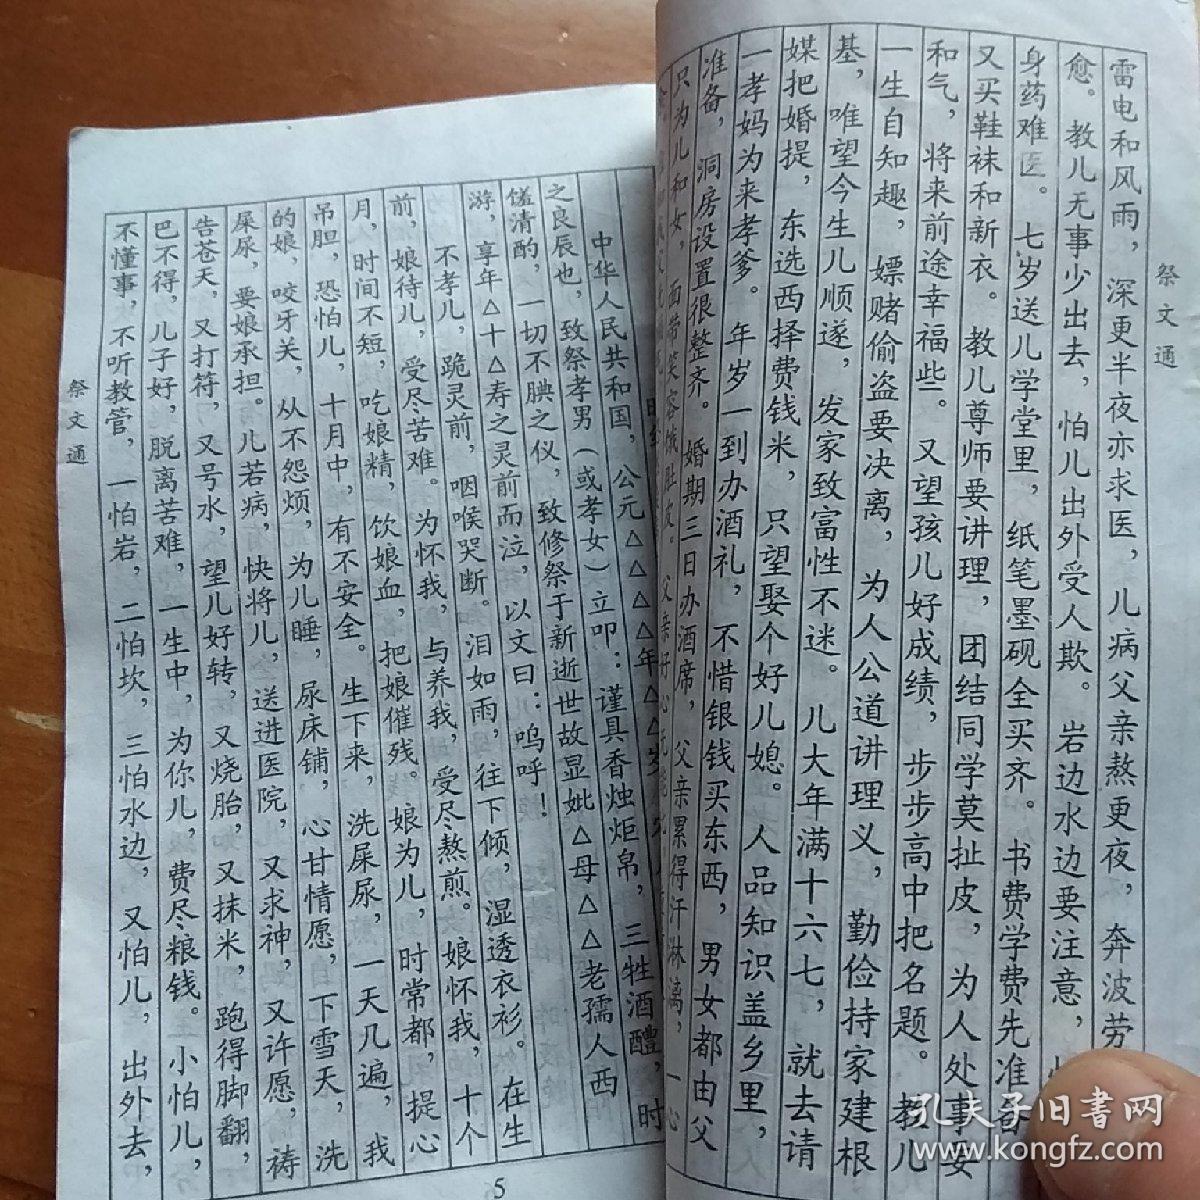 祭文通
雷电和风雨，深更半夜亦求医，儿病父亲熬更夜，奔波劳
愈。教儿无事少出去，怕儿出外受人欺。岩边水边要注意，
身药难医。七岁送儿学堂里，纸笔墨砚全买齐。书费学费先准备
又买鞋袜和新衣。教儿尊师要讲理，团结同学莫扯皮，为人处事要
和气，将来前途幸福些。又望孩儿好成绩，步步高中把名题。教儿
一生自知趣，嫖赌偷盗要决离，为人公道讲理义，勤俭持家建根
基，唯望今生儿顺遂，发家致富性不迷。儿大年满十六七，就去请
媒把婚提，东选西择费钱米，只望娶个好儿媳。人品知识盖乡里，
一孝妈为来孝爹。年岁一到办酒礼，不惜银钱买东西，男女都由父
准备，洞房设置很整齐。婚期三日办酒席，父亲累得汗淋漓，一心
只为儿和女，面带笑容饿肚皮。父亲好心
中华人民共和国，公元△△△△年△△岁
之良辰也，致祭孝男（或孝女）立叩：谨具香烛炬帛，三牲酒醴，时
馐清酌，一切不腆之仪，致修祭于新逝世故显妣△母△△老孺人西
游，享年△十△寿之灵前而泣，以文曰：呜呼！
不孝儿，跪灵前，咽喉哭断。泪如雨，往下倾，湿透衣衫。在生
前，娘待儿，受尽苦难。为怀我，与养我，受尽熬煎。娘怀我，十个
月，时间不短，吃娘精，饮娘血，把娘催残。娘为儿，时常都，提心
吊胆，恐怕儿，十月中，有不安全。生下来，洗屎尿，一天几遍，我
的娘，咬牙关，从不怨烦，为儿睡，尿床铺，心甘情愿，下雪天，洗
屎尿，要娘承担。儿若病，快将儿，送进医院，又求神，又许愿，祷
告苍天，又打符，又号水，望儿好转，又烧胎，又抹米，跑得脚翻，
巴不得，儿子好，脱离苦难，一生中，为你儿，费尽粮钱。小怕儿，
不懂事，不听教管，一怕岩，二怕坎，三怕水边，又怕儿，出外去，
祭文通
5
孔夫子旧书网
www.kongfz.com